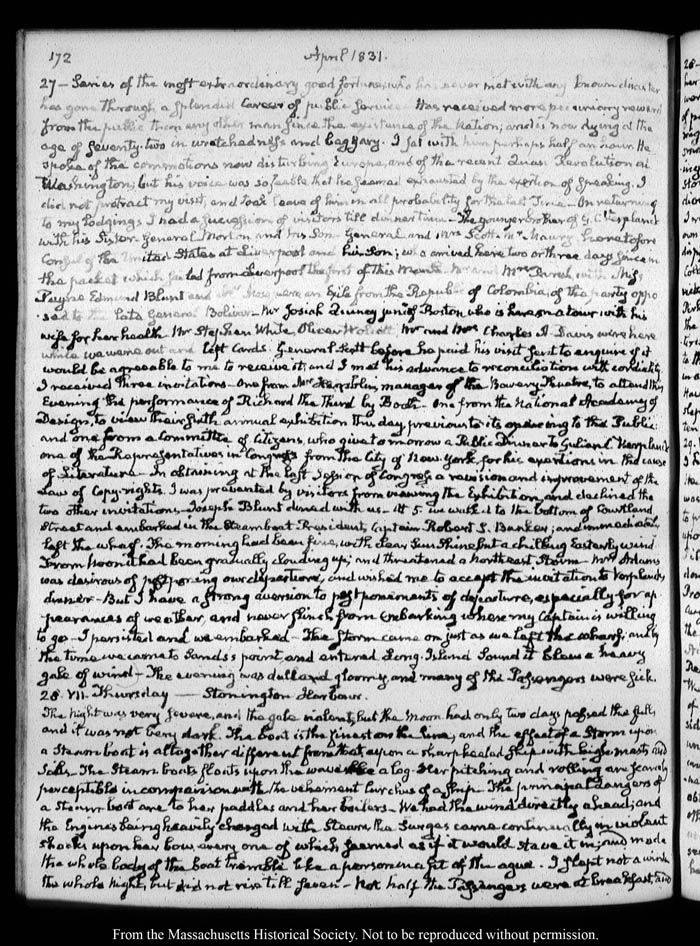 172 April 1831.
27 — Series of the most extraordinary good fortune, who has never met with any known disaster
has gone through a splendid career of public service. Has received more pecuniary reward
from the public than any other man since the existence of the Nation, and is now dying at the
age of seventy-two in wretchedness and beggary. I sat with him perhaps half an hour. He
spoke of the commotions now disturbing Europe, and of the recent Quasi Revolution at
Washington; but his voice was so feeble that he seemed exhausted by the exertion of speaking. I
did not protract my visit, and took leave of him in all probability for the last time — On returning
to my lodgings I had a succession of visitors till dinner time — The younger brother of G. C. Verplanck
with his Sister. General Morton and his Son. General and Mrs Scott. Mr Maury heretofore
Consul of the United States at Liverpool and his Son; who arrived here two or three days since in
the packet which sailed from Liverpool the first of this Month. Mr and Mrs with Miss
Payne Edmund Blunt and an Exile from the Republic of Colombia, of the party oppo
sed to the late General Bolivar. Mr Josiah Quincy junr of Boston who is here on a tour with his
wife for her health. Mr Stephen White, Oliver Wolcott, Mr and Mrs Charles A. Davis were here
while we were out and left Cards. General Scott before he paid his visit sent to enquire if it
would be agreeable to me to receive it, and I met his advance to reconciliation with cordiality.
I received three invitations — One from Mr Hamblin, manager of the Bowery Theatre, to attend this
Evening the performance of Richard the Third by Booth — One from the National Academy of
Design, to view their sixth annual exhibition this day previous to its opening to the Public
and one from a Committee of Citizens, who give tomorrow a Public Dinner to Gulian C. Verplanck
one of the Representatives in Congress from the City of New York, for his exertions in the cause
of Literature — In obtaining at the last Session of Congress a revision and improvement of the
Law of Copy-rights. I was prevented by visitors from viewing the Exhibition, and declined the
two other invitations. Joseph Blunt dined with us — At 5 we walked to the bottom of Courtland
Street and embarked in the Steamboat President, Captain Robert S. Bunker; and immediately
left the wharf. The morning had been fine, with clear Sun Shine but a chilling Easterly wind
From Noon it had been gradually clouding up; and threatened a North east Storm — Mrs Adams
was desirous of postponing our departure, and wished me to accept the invitation to Verplanck's
dinner — But I have a strong aversion to postponements of departure, especially for ap
pearances of weather, and never flinch from embarking where my Captain is willing
to go — I persisted and we embarked — The Storm came on just as we left the wharf; and by
the time we came to Sands's point, and entered Long-Island Sound it blew a heavy
gale of wind — The evening was dull and gloomy, and many of the Passengers were sick.
28. VII. Thursday — Stonington Harbour.
The night was very severe, and the gale violent, but the Moon had only two days passed the full,
and it was not very dark. The boat is the finest on the line, and the effect of a Storm upon
a Steam boat is altogether different from that upon a sharp keeled ship with high masts and
Sails. The Steam boat floats upon the wave like a log — Her pitching and rolling are scarcely
perceptible in comparison with the vehement lurches of a ship. The principal dangers of
a Steam boat are to her paddles and her boilers — We had the wind directly ahead; and
the Engines being heavily charged with Steam, the surges came continually in violent
shocks upon her bow, every one of which seemed as if it would stave it in; and made
the whole body of the boat tremble like a person in a fit of the ague. I slept not a wink
the whole night, but did not rise till seven — Not half the Passengers were at breakfast, and
From the Massachusetts Historical Society. Not to be reproduced without permission.